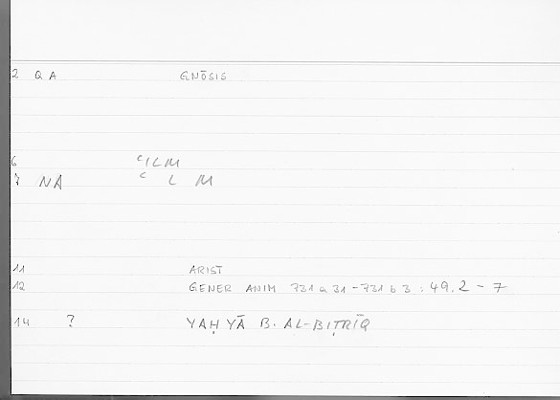 2 QA GNŌSIS
6 ʿILM
7 NA ʿ L M
11 ARIST
12 GENER ANIM 731a31-731b3 : 49.2-7
14 ? YAḤYĀ B. AL-BIṬRĪQ